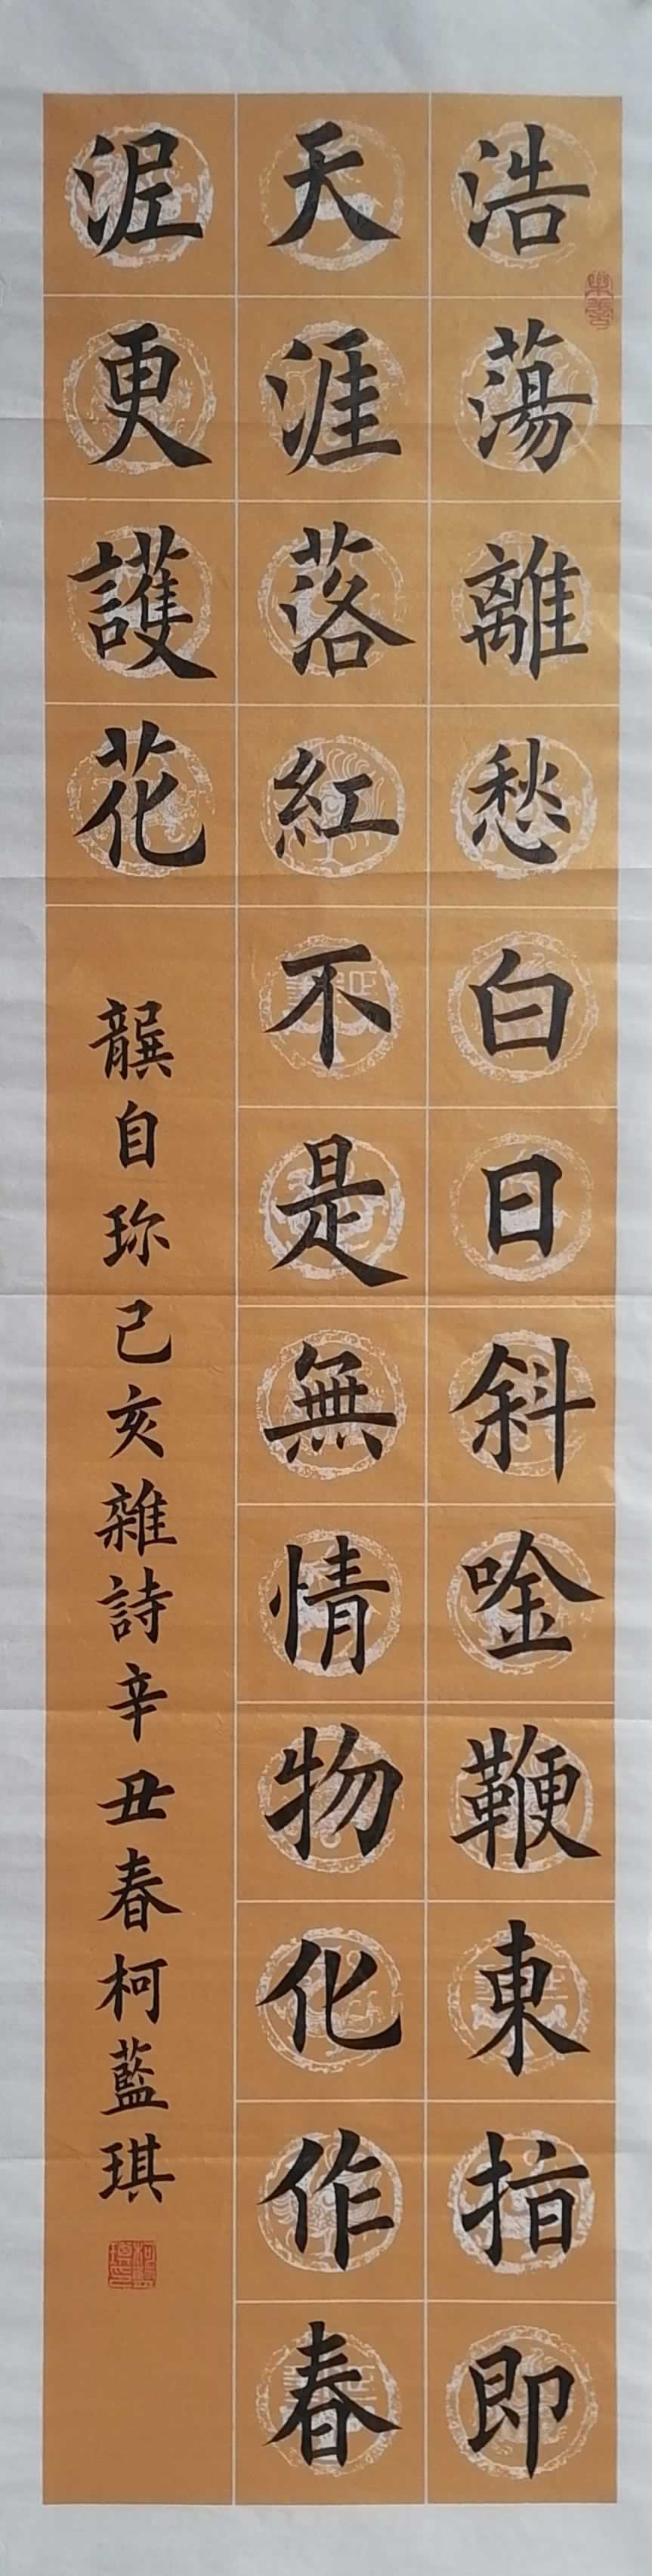 浩蕩離愁白日斜唫鞭東指即
天涯落紅不是無情物化作春
泥更護花
龔自珍己亥雜詩辛丑春柯藍琪